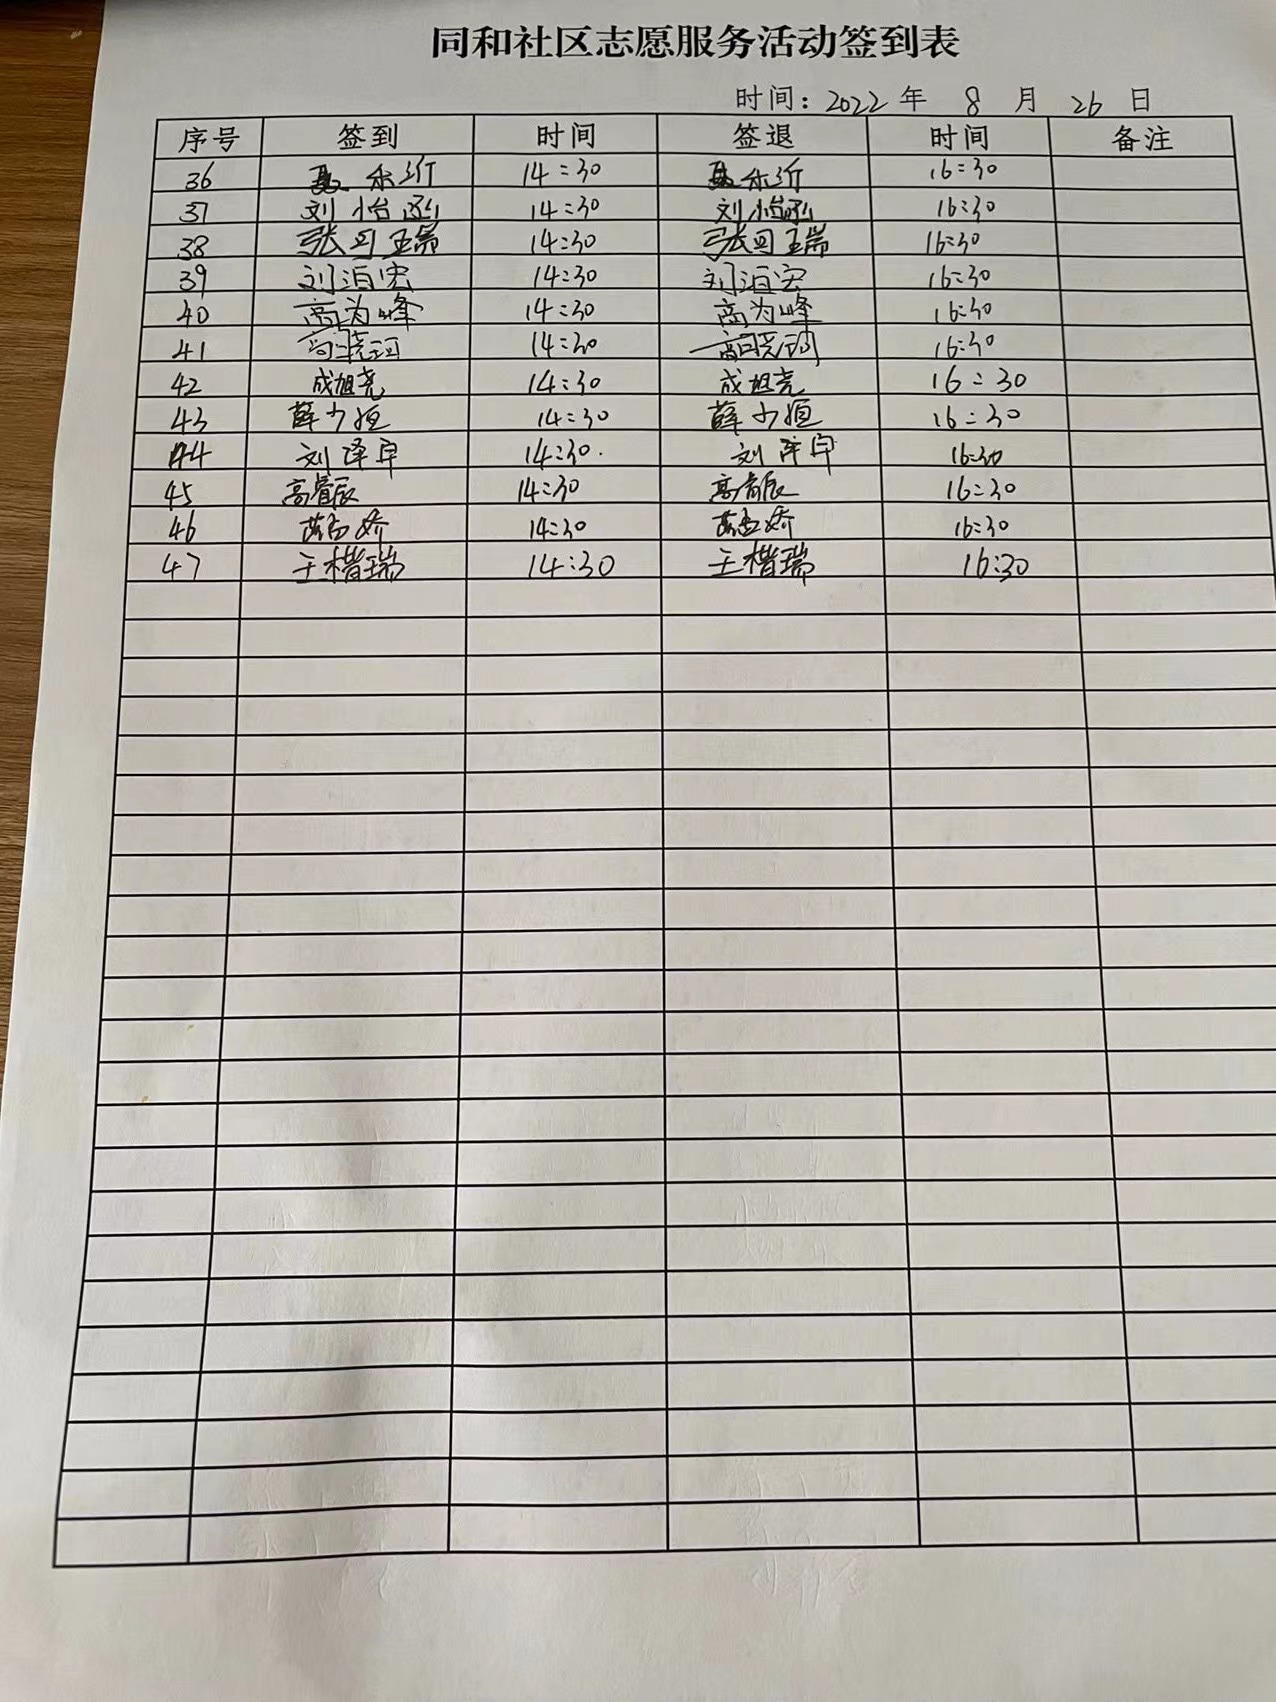 同和社区志愿服务活动签到表
时间：2022 年 8 月 26 日
序号 签到 时间 签退 时间 备注
36 14:30 16:30
37 刘怡 14:30 刘怡 16:30
38 张 14:30 张 16:30
39 刘泊宏 14:30 刘泊宏 16:30
40 高为峰 14:30 高为峰 16:30
41 高晓珂 14:30 高晓珂 16:30
42 成旭尧 14:30 成旭尧 16:30
43 薛少恒 14:30 薛少恒 16:30
44 刘泽卓 14:30 刘泽卓 16:30
45 高睿辰 14:30 高睿辰 16:30
46 娇 14:30 娇 16:30
47 王楷瑞 14:30 王楷瑞 16:30